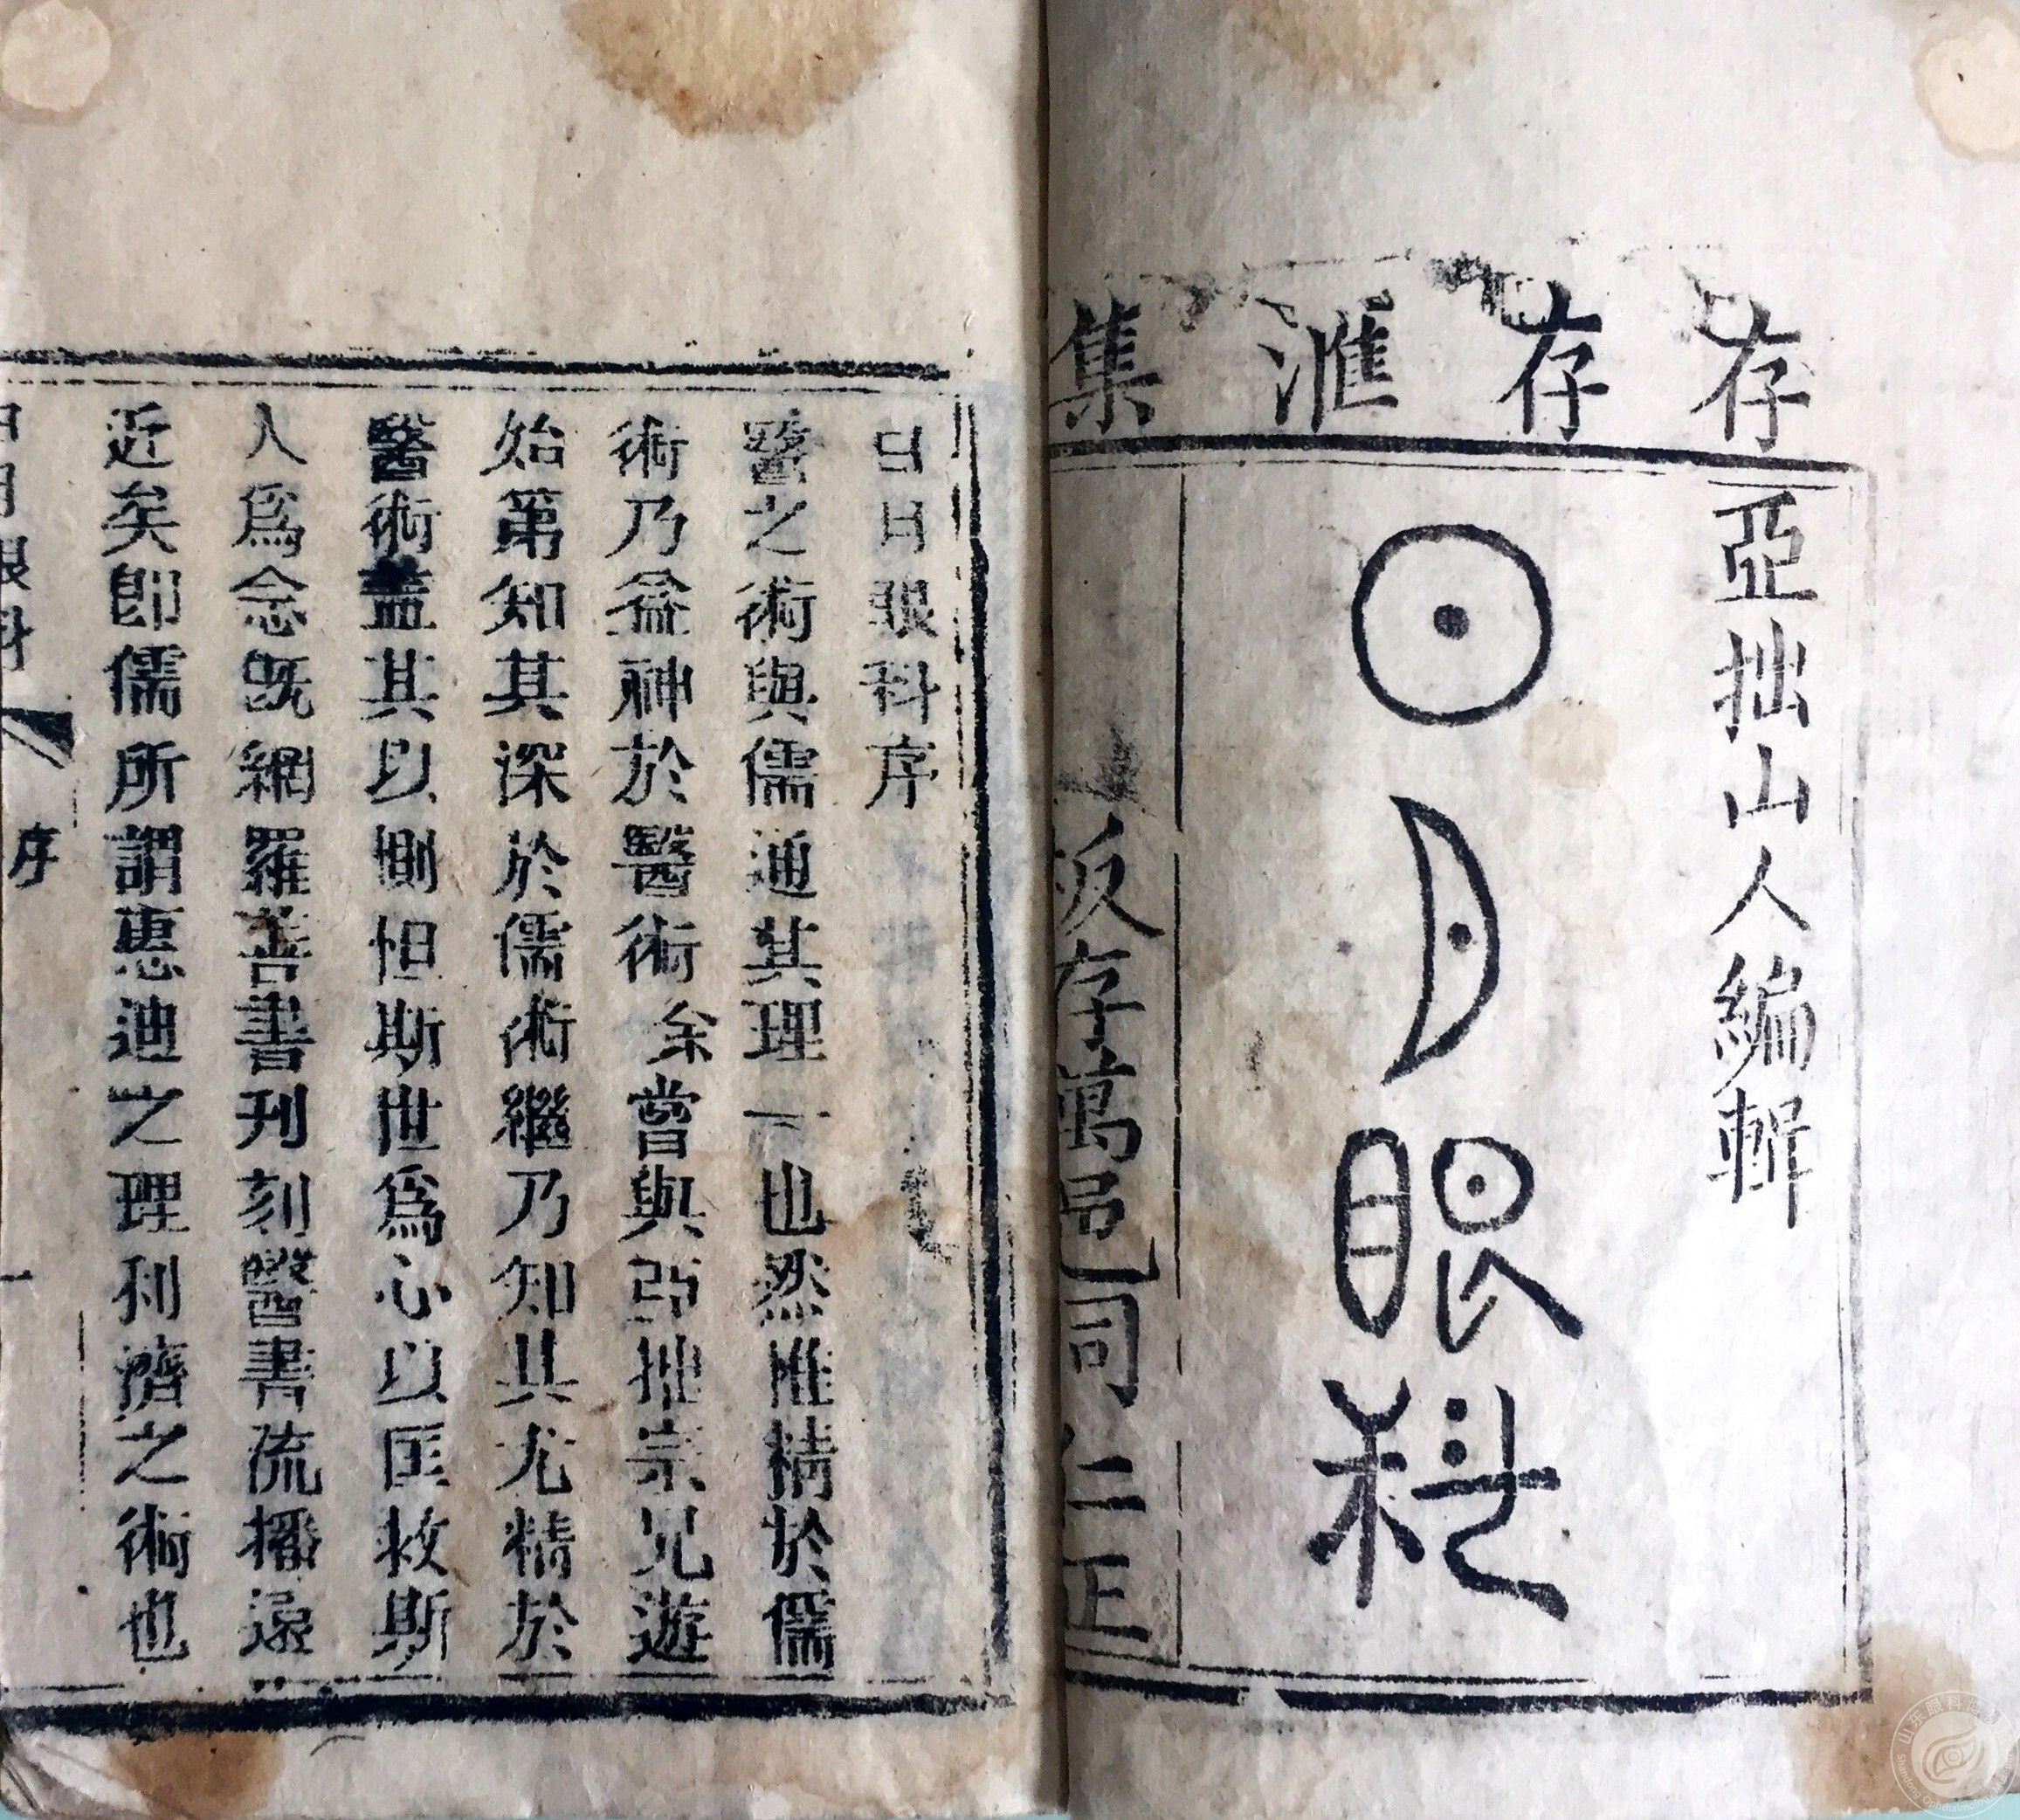 存存滙集
亞拙山人編輯
日月眼科
板存萬邑司仁正
日月眼科序
醫之術與儒通其理一也然惟精於儒
術乃益神於醫術余嘗與亞拙宗兄遊
始第知其深於儒術繼乃知其尤精於
醫術蓋其以惻怛斯世爲心以匡救斯
人爲念既網羅善書刊刻醫書流播遠
近矣卽儒所謂惠迪之理利濟之術也
眼科
序
一
山东眼科